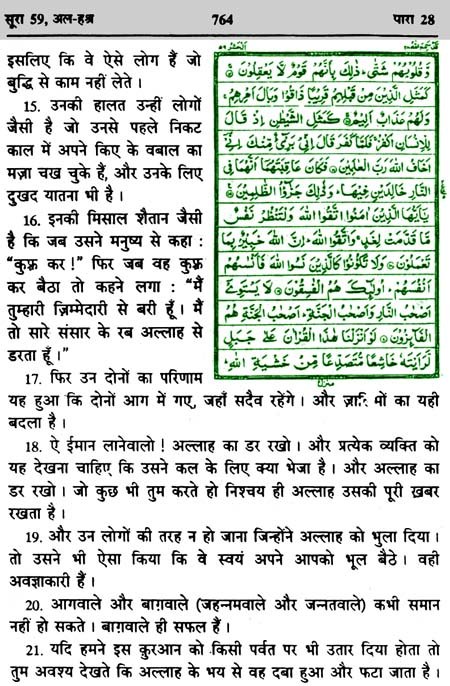 सूरा 59, अल-हश्र 764 पारा 28
इसलिए कि वे ऐसे लोग हैं जो
बुद्धि से काम नहीं लेते ।
15. उनकी हालत उन्हीं लोगों
जैसी है जो उनसे पहले निकट
काल में अपने किए के वबाल का
मज़ा चख चुके हैं, और उनके लिए
दुखद यातना भी है ।
16. इनकी मिसाल शैतान जैसी
है कि जब उसने मनुष्य से कहा :
“कुफ़्र कर !” फिर जब वह कुफ़्र
कर बैठा तो कहने लगा : “मैं
तुम्हारी ज़िम्मेदारी से बरी हूँ । मैं
तो सारे संसार के रब अल्लाह से
डरता हूँ ।”
وَّقُلُوبُهُمْ شَتّٰى ۭ ذٰلِكَ بِاَنَّهُمْ قَوْمٌ لَّا يَعْقِلُوْنَ
كَمَثَلِ الَّذِيْنَ مِنْ قَبْلِهِمْ قَرِيْبًا ذَاقُوْا وَبَالَ اَمْرِهِمْ
وَلَهُمْ عَذَابٌ اَلِيْمٌ كَمَثَلِ الشَّيْطٰنِ اِذْ قَالَ
لِلْاِنْسَانِ اكْفُرْ فَلَمَّا كَفَرَ قَالَ اِنِّىْ بَرِىْۗءٌ مِّنْكَ اِنِّىْٓ
اَخَافُ اللّٰهَ رَبَّ الْعٰلَمِيْنَ فَكَانَ عَاقِبَتَهُمَآ اَنَّهُمَا فِى
النَّارِ خَالِدَيْنِ فِيْهَا ۭ وَذٰلِكَ جَزٰۗؤُا الظّٰلِمِيْنَ
يٰٓاَيُّهَا الَّذِيْنَ اٰمَنُوا اتَّقُوا اللّٰهَ وَلْتَنْظُرْ نَفْسٌ
مَّا قَدَّمَتْ لِغَدٍ ۚ وَاتَّقُوا اللّٰهَ ۭ اِنَّ اللّٰهَ خَبِيْرٌۢ بِمَا
تَعْمَلُوْنَ وَلَا تَكُوْنُوْا كَالَّذِيْنَ نَسُوا اللّٰهَ فَاَنْسٰىهُمْ
اَنْفُسَهُمْ ۭ اُولٰۗىِٕكَ هُمُ الْفٰسِقُوْنَ لَا يَسْتَوِىْٓ
اَصْحٰبُ النَّارِ وَاَصْحٰبُ الْجَنَّةِ ۭ اَصْحٰبُ الْجَنَّةِ هُمُ
الْفَاۗىِٕزُوْنَ لَوْ اَنْزَلْنَا هٰذَا الْقُرْاٰنَ عَلٰى جَبَلٍ
لَّرَاَيْتَهٗ خَاشِعًا مُّتَصَدِّعًا مِّنْ خَشْيَةِ اللّٰهِ
17. फिर उन दोनों का परिणाम
यह हुआ कि दोनों आग में गए, जहाँ सदैव रहेंगे । और ज़ालिमों का यही
बदला है ।
18. ऐ ईमान लानेवालो ! अल्लाह का डर रखो । और प्रत्येक व्यक्ति को
यह देखना चाहिए कि उसने कल के लिए क्या भेजा है । और अल्लाह का
डर रखो । जो कुछ भी तुम करते हो निश्चय ही अल्लाह उसकी पूरी ख़बर
रखता है ।
19. और उन लोगों की तरह न हो जाना जिन्होंने अल्लाह को भुला दिया ।
तो उसने भी ऐसा किया कि वे स्वयं अपने आपको भूल बैठे । वही
अवज्ञाकारी हैं ।
20. आगवाले और बाग़वाले (जहन्नमवाले और जन्नतवाले) कभी समान
नहीं हो सकते । बाग़वाले ही सफल हैं ।
21. यदि हमने इस क़ुरआन को किसी पर्वत पर भी उतार दिया होता तो
तुम अवश्य देखते कि अल्लाह के भय से वह दबा हुआ और फटा जाता है ।